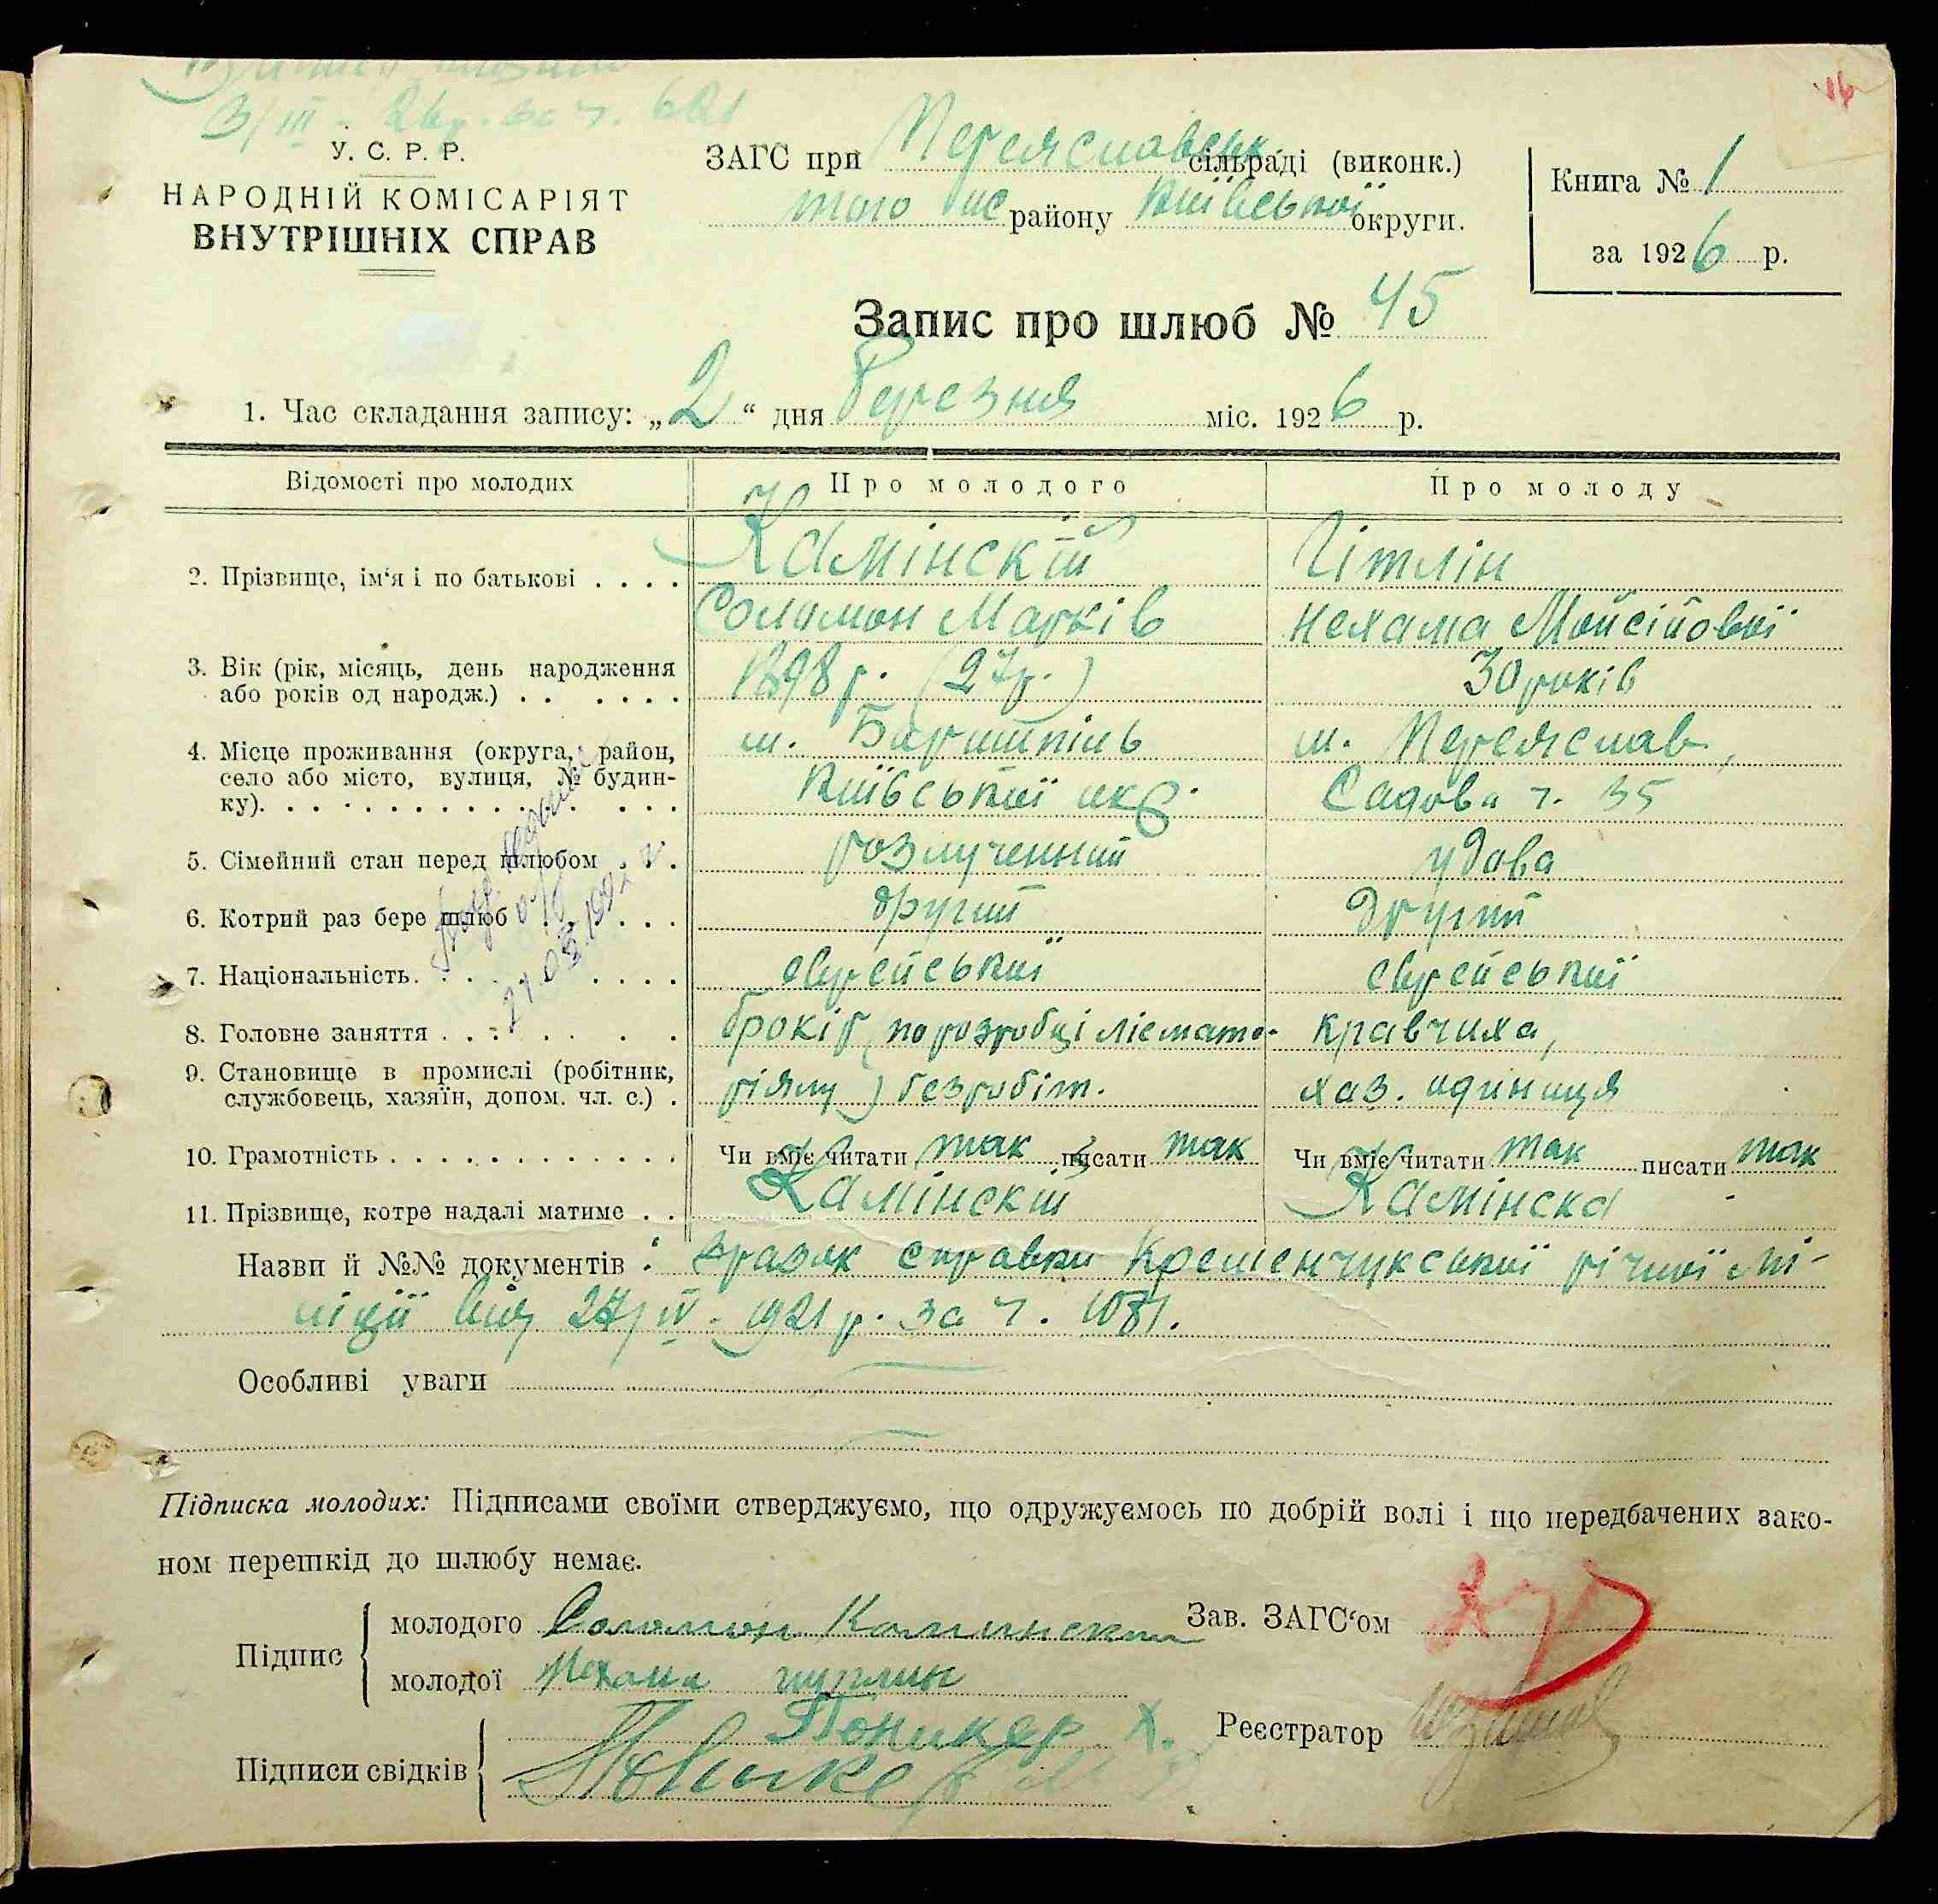 3/III - 26р. за ч. 621
16
У. С. Р. Р.
НАРОДНІЙ КОМІСАРІЯТ
ВНУТРІШНІХ СПРАВ
ЗАГС при Переяславськ сільраді (виконк.)
того ж району Київської округи.
Книга № 1
за 1926 р.
Запис про шлюб № 45
1. Час складання запису: „2“ дня Березня міс. 1926 р.
Відомості про молодих
Про молодого
Про молоду
2. Прізвище, ім‘я і по батькові . . . .
Камінскій
Соломон Марків
Гітлін
Нехама Мойсійовні
3. Вік (рік, місяць, день народження
або років од народж.) . . . . . .
1898 р. (27р.)
30 років
4. Місце проживання (округа, район,
село або місто, вулиця, № будин-
ку). . . . . . . . . . . . . .
м. Баришпіль
Київської окр.
м. Переяслав,
Садова ч. 35
5. Сімейний стан перед шлюбом . . .
розлученний
удова
6. Котрий раз бере шлюб . . . . .
другий
другий
7. Національність. . . . . . . .
еврейської
еврейської
8. Головне заняття . . . . . . .
брокір (по розробці лісмате-
кравчиха,
9. Становище в промислі (робітник,
службовець, хазяїн, допом. чл. с.) .
ріялу) безробіт.
хаз. одиниця
10. Грамотність . . . . . . . . . . . .
Чи вміє читати так писати так
Чи вміє читати так писати так
11. Прізвище, котре надалі матиме . .
Камінскій
Камінска
Назви й №№ документів: справки Кременчукської річної мі-
ліції від 27/IV - 1921 р. за ч. 1081.
Особливі уваги
27.03.1992
Підписка молодих: Підписами своїми стверджуємо, що одружуємось по добрій волі і що передбачених зако-
ном перешкід до шлюбу немає.
Підпис
молодого Соломон Каминский
молодої Нехама гитлин
Зав. ЗАГС‘ом
Підписи свідків
Поникер Х.
Поникер
Реєстратор